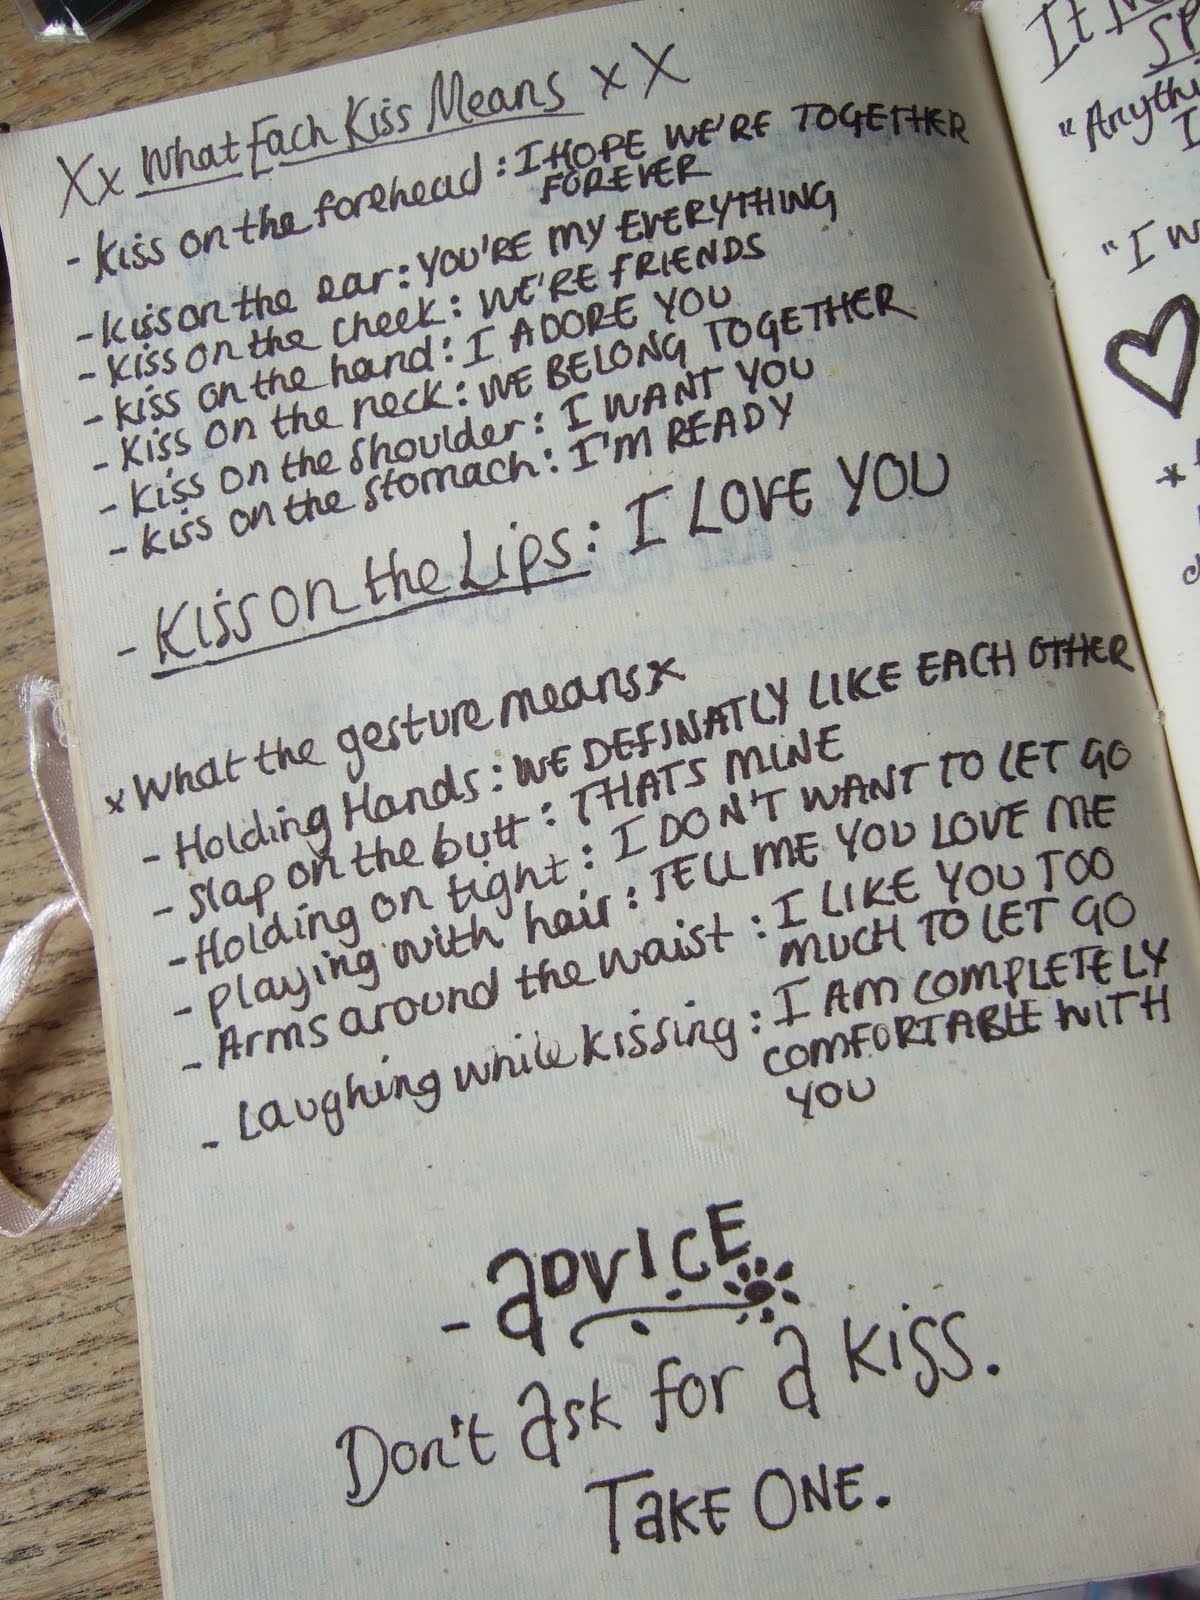 Xx What Each Kiss Means x X
- Kiss on the forehead : I HOPE WE'RE TOGETHER
FOREVER
- Kiss on the ear : YOU'RE MY EVERYTHING
- Kiss on the cheek : WE'RE FRIENDS
- Kiss on the hand : I ADORE YOU
- Kiss on the neck : WE BELONG TOGETHER
- Kiss on the shoulder : I WANT YOU
- Kiss on the stomach : I'M READY
- Kiss on the Lips : I LOVE YOU
x What the gesture means x
- Holding Hands : WE DEFINATLY LIKE EACH OTHER
- Slap on the butt : THATS MINE
- Holding on tight : I DON'T WANT TO LET GO
- Playing with hair : TELL ME YOU LOVE ME
- Arms around the waist : I LIKE YOU TOO
MUCH TO LET GO
- Laughing while kissing : I AM COMPLETELY
COMFORTABLE WITH
YOU
- ADVICE
Don't ask for a kiss.
TAKE ONE.
It
"Anythi
I
"I w